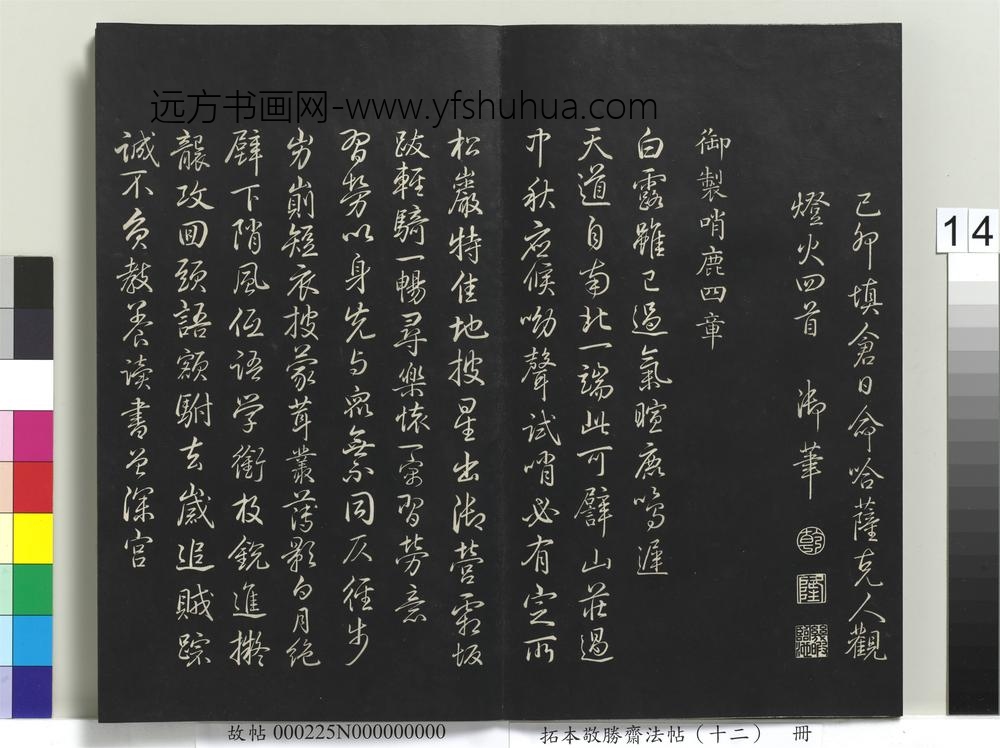 远方书画网-www.yfshuhua.com
己卯填倉日命哈薩克人觀
燈火四首 御筆
乾
隆
御製哨鹿四章
白露雖已過氣暄鹿鳴遲
天道自南北一端此可譬山莊過
中秋應候呦聲試哨必有定所
松巖特佳地披星出御營霜坂
跋輕騎一暢尋樂懷一寓習勞意
習勞以身先与衆無不同仄徑步
岃崱短衣披蒙茸叢薄影句月絶
壁下陗風伍語学銜枚銳進擬
龍攻回頭語額駙去歲追賊踪
誠不負教養读書曾深宫
14
故帖 000225N000000000
拓本敬勝齋法帖（十二） 冊